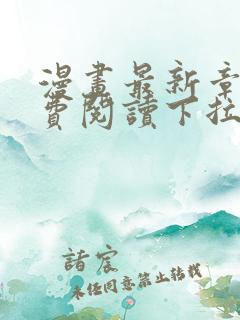 漫畫最新章
費閱讀下拉
諸宸
未经同意禁止转载